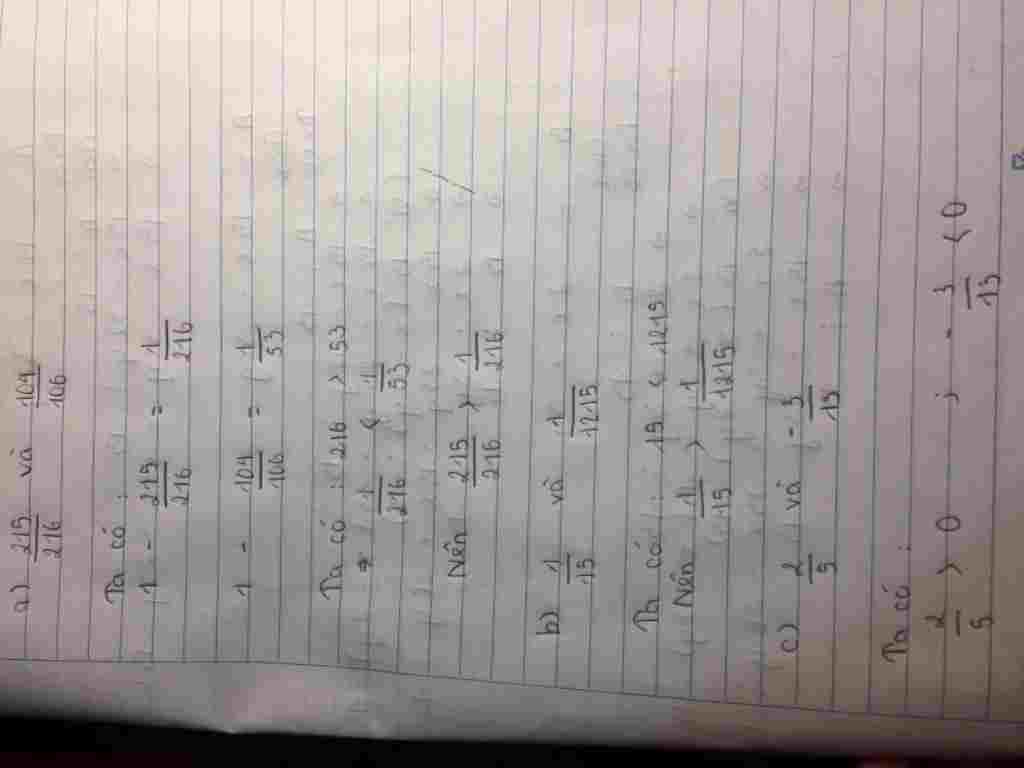 a) 215/216 và 104/106
Ta có :
1 - 215/216 = 1/216
1 - 104/106 = 1/53
Ta có : 216 > 53
⇒ 1/216 < 1/53
Nên 215/216 > 1/216
b) 1/15 và 1/1215
Ta có : 15 < 1215
Nên 1/15 > 1/1215
c) 2/5 và -3/15
Ta có :
2/5 > 0 ; -3/15 < 0